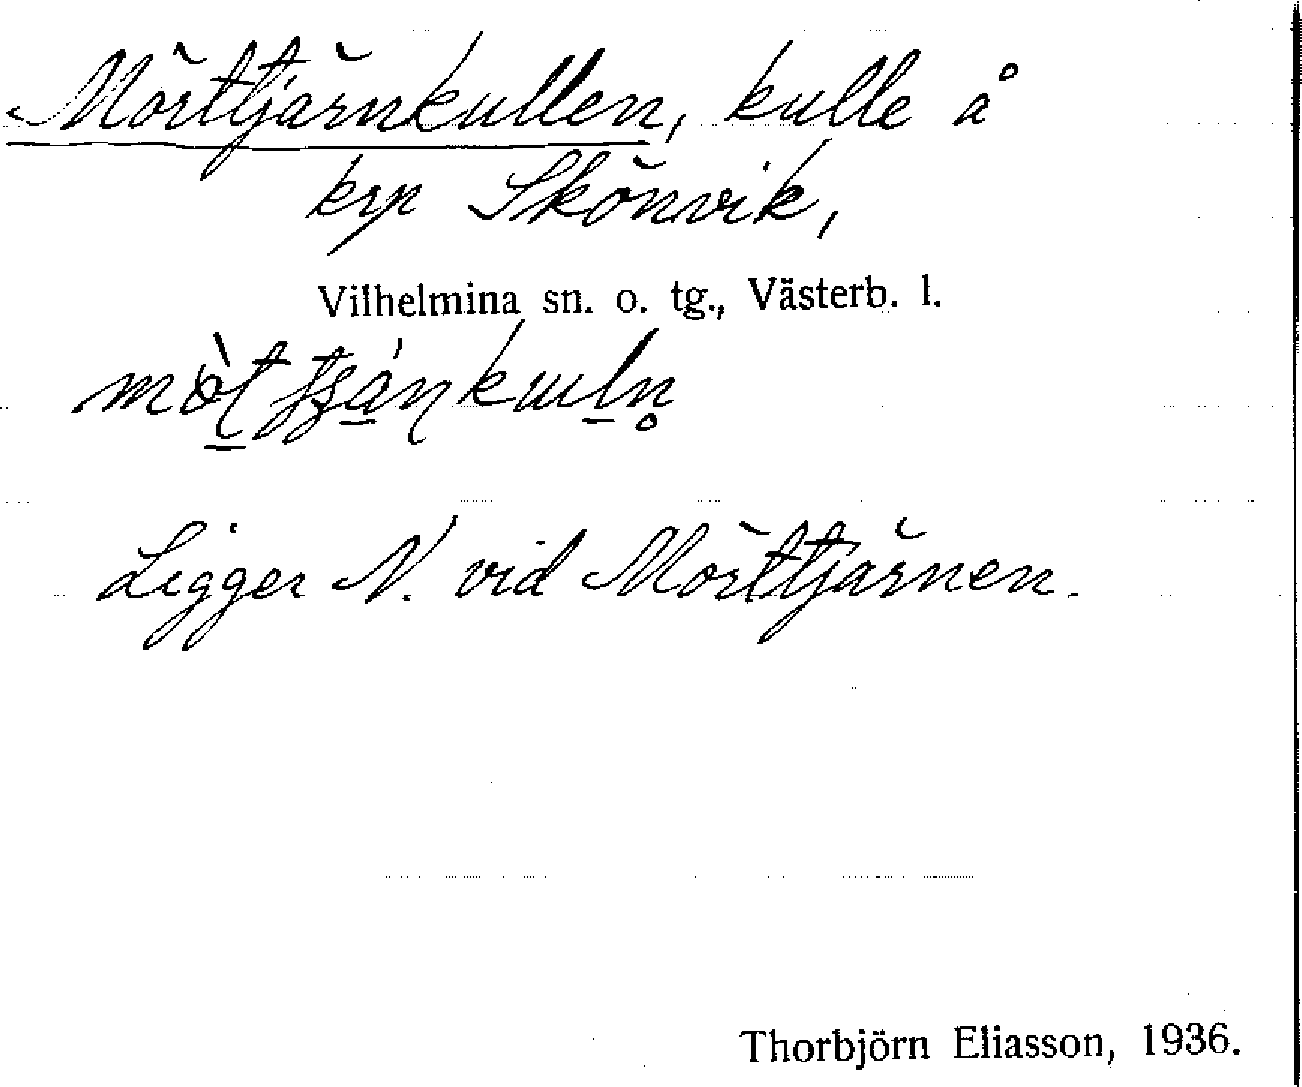 Mörttjärnkullen, kulle å
krp Skönvik,
Vilhelmina sn. o. tg., Västerb. l.
Ligger N. vid Mörttjärnen.
Thorbjörn Eliasson, 1936.